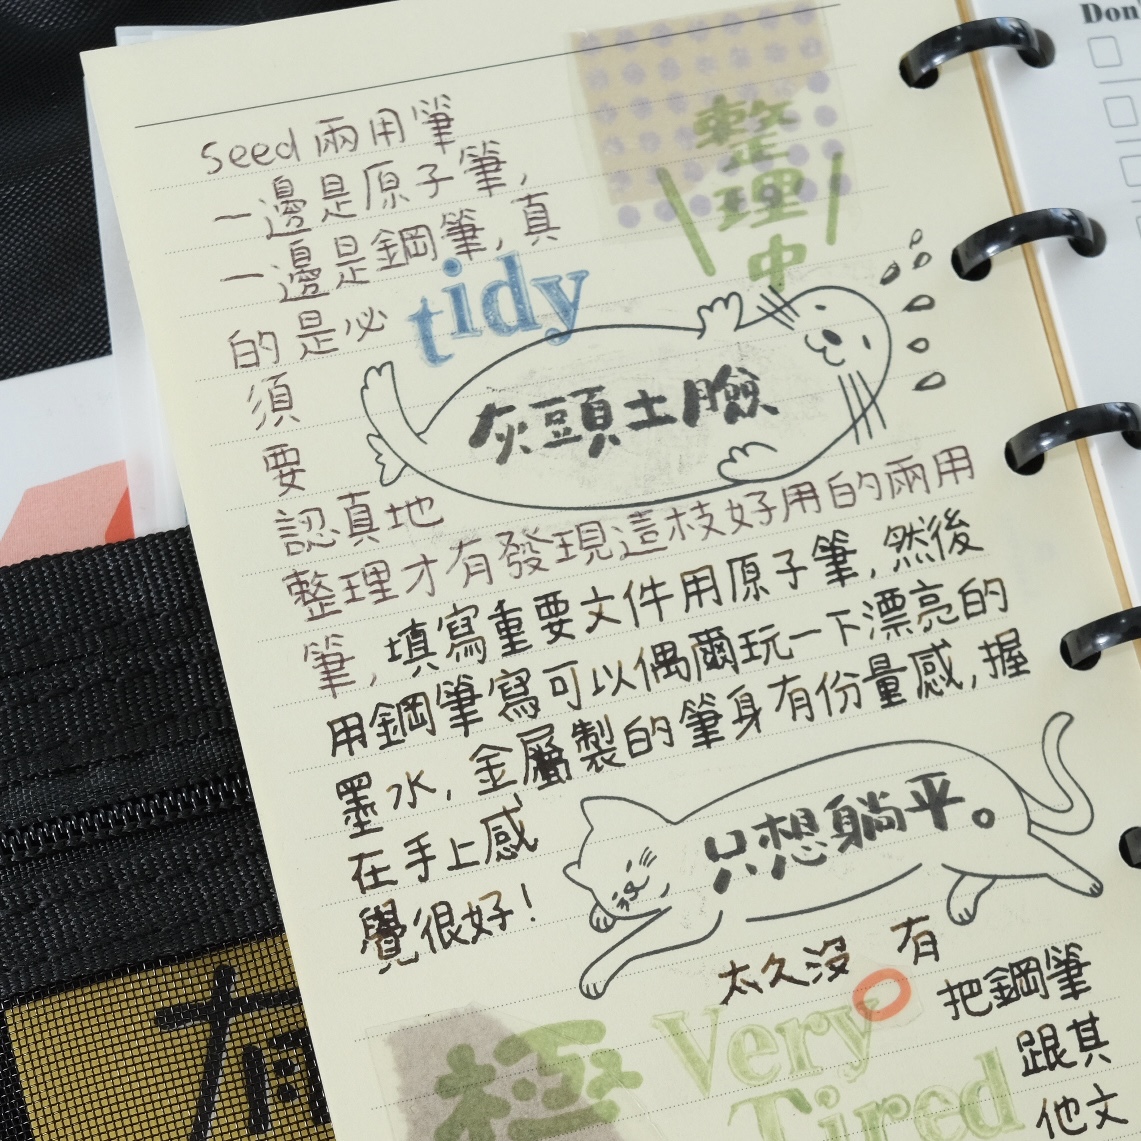 Don
Seed 兩用筆
一邊是原子筆,
一邊是鋼筆,真
的是必
須
要
認真地
整理才有發現這枝好用的兩用
筆,填寫重要文件用原子筆,然後
用鋼筆寫可以偶爾玩一下漂亮的
墨水,金屬製的筆身有份量感,握
在手上感
覺很好!
整
理
中
tidy
灰頭土臉
只想躺平。
太久沒有
把鋼筆
跟其
他文
極
Very
Tired